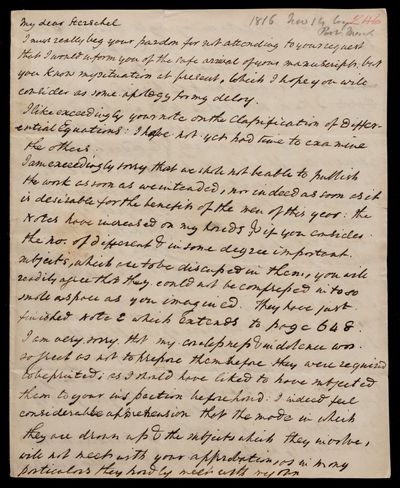 My dear Herschel
1816 Nov 14 by
Post Mark
I must really beg your pardon for not attending to your request
that I would inform you of the safe arrival of your manuscripts; but
you know my situation at present, which I hope you will
consider as some apology for my delay.
I like exceedingly your note on the Classification of Differ-
ential Equations: I have not yet had time to examine
the others.
I am exceedingly sorry that we shall not be able to publish
the work as soon as we intended; nor indeed as soon as it
is desirable for the benefit of the men of this year: the
Notes have increased on my hands, & if you consider
the no. of different & in some degree important
subjects, which are to be discussed in them, you will
readily agree that they could not be compressed in to so
small a space as you imagined. They have just
finished Note E which extends to page 648.
I am very sorry that my carelessness & indolence was
so great as not to prepare them before they were required
to be printed; as I should have liked to have subjected
them to your inspection beforehand: I indeed feel
considerable apprehension that the mode in which
they are drawn up & the subjects which they involve,
will not meet with your approbation, as in many
particulars they hardly meet with my own